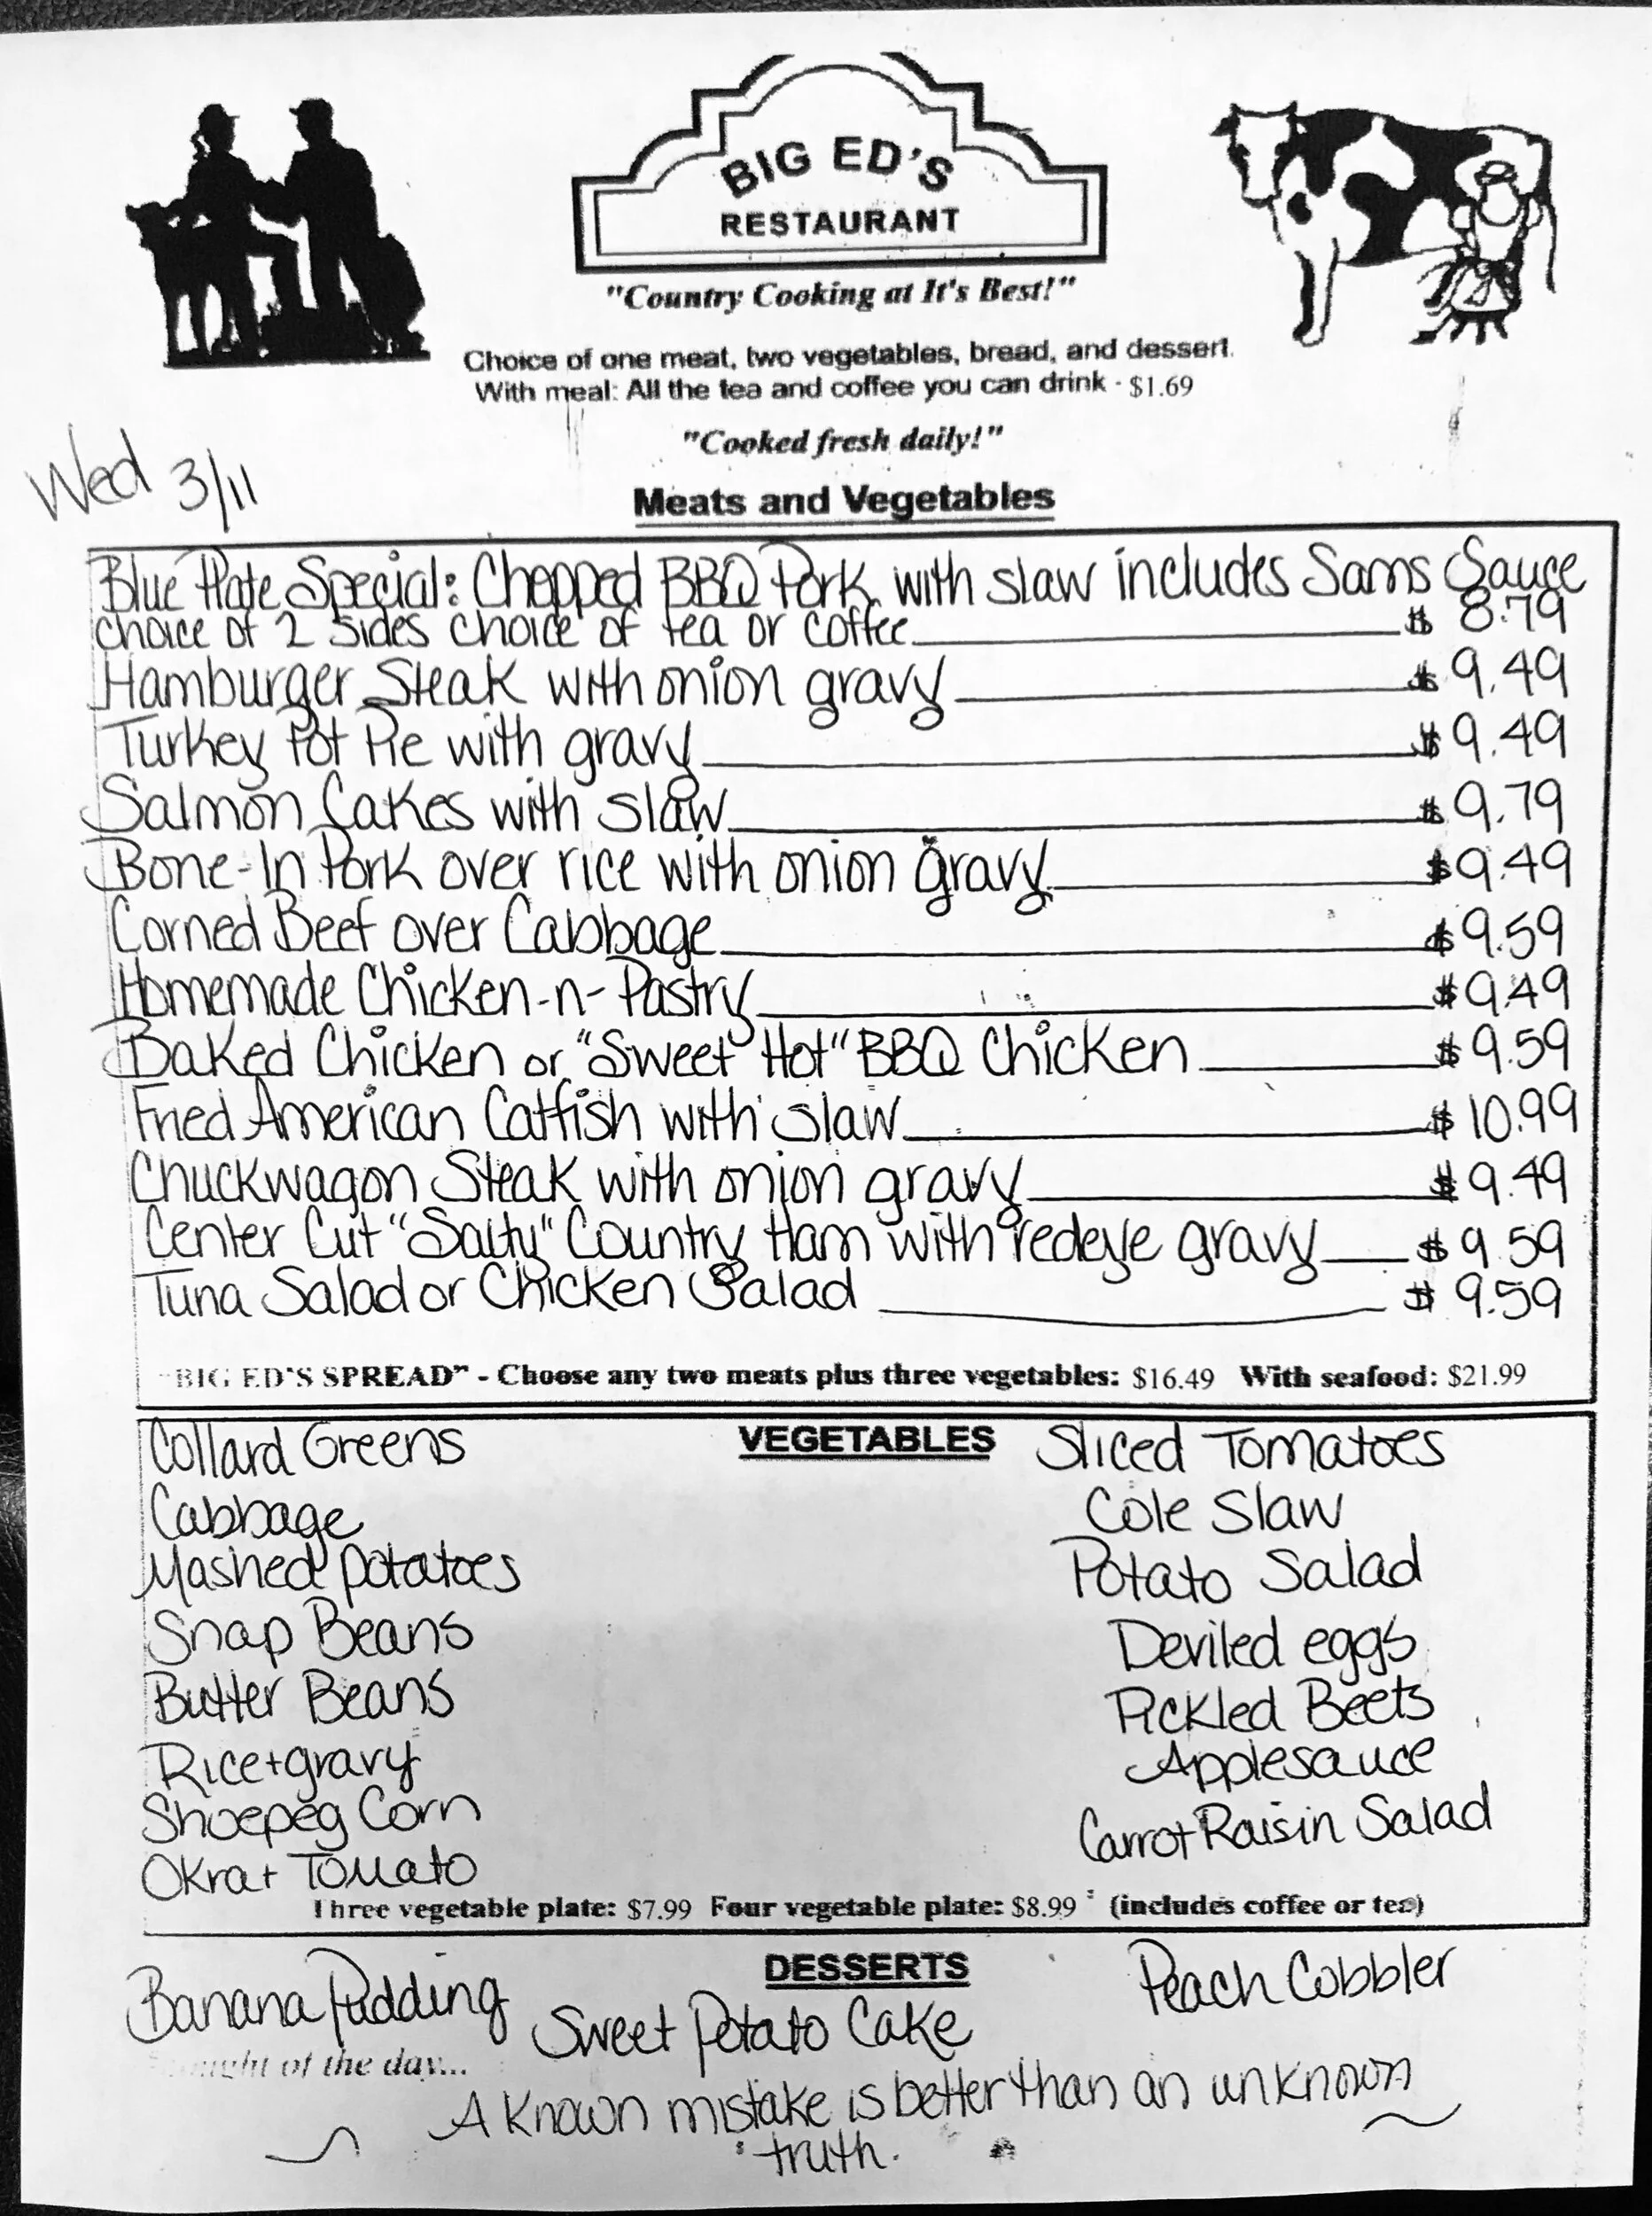 BIG ED'S
RESTAURANT
"Country Cooking at It's Best!"
Choice of one meat, two vegetables, bread, and dessert.
With meal: All the tea and coffee you can drink - $1.69
"Cooked fresh daily!"
Wed 3/11
Meats and Vegetables
Blue Plate Special: Chopped BBQ Pork with slaw includes Sams Sauce
choice of 2 sides choice of tea or coffee $ 8.79
Hamburger Steak with onion gravy $ 9.49
Turkey Pot Pie with gravy $ 9.49
Salmon Cakes with slaw $ 9.79
Bone-In Pork over rice with onion gravy $ 9.49
Corned Beef over Cabbage $ 9.59
Homemade Chicken-n-Pastry $ 9.49
Baked Chicken or "Sweet Hot" BBQ Chicken $ 9.59
Fried American Catfish with slaw $ 10.99
Chuckwagon Steak with onion gravy $ 9.49
Center Cut "Salty" Country Ham with redeye gravy $ 9.59
Tuna Salad or Chicken Salad $ 9.59
"BIG ED'S SPREAD" - Choose any two meats plus three vegetables: $16.49 With seafood: $21.99
VEGETABLES
Collard Greens
Cabbage
Mashed potatoes
Snap Beans
Butter Beans
Rice + gravy
Shoepeg Corn
Okra + Tomato
Sliced Tomatoes
Cole Slaw
Potato Salad
Deviled eggs
Pickled Beets
Applesauce
Carrot Raisin Salad
Three vegetable plate: $7.99 Four vegetable plate: $8.99 (includes coffee or tea)
DESSERTS
Banana Pudding
Sweet Potato Cake
Peach Cobbler
of the day...
A known mistake is better than an unknown
truth.